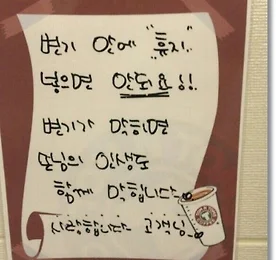 변기 안에 "휴지"
넣으면 안되요!!
변기가 막히면
따님의 인생도
함께 막힙니다.
사랑합니다 고객님